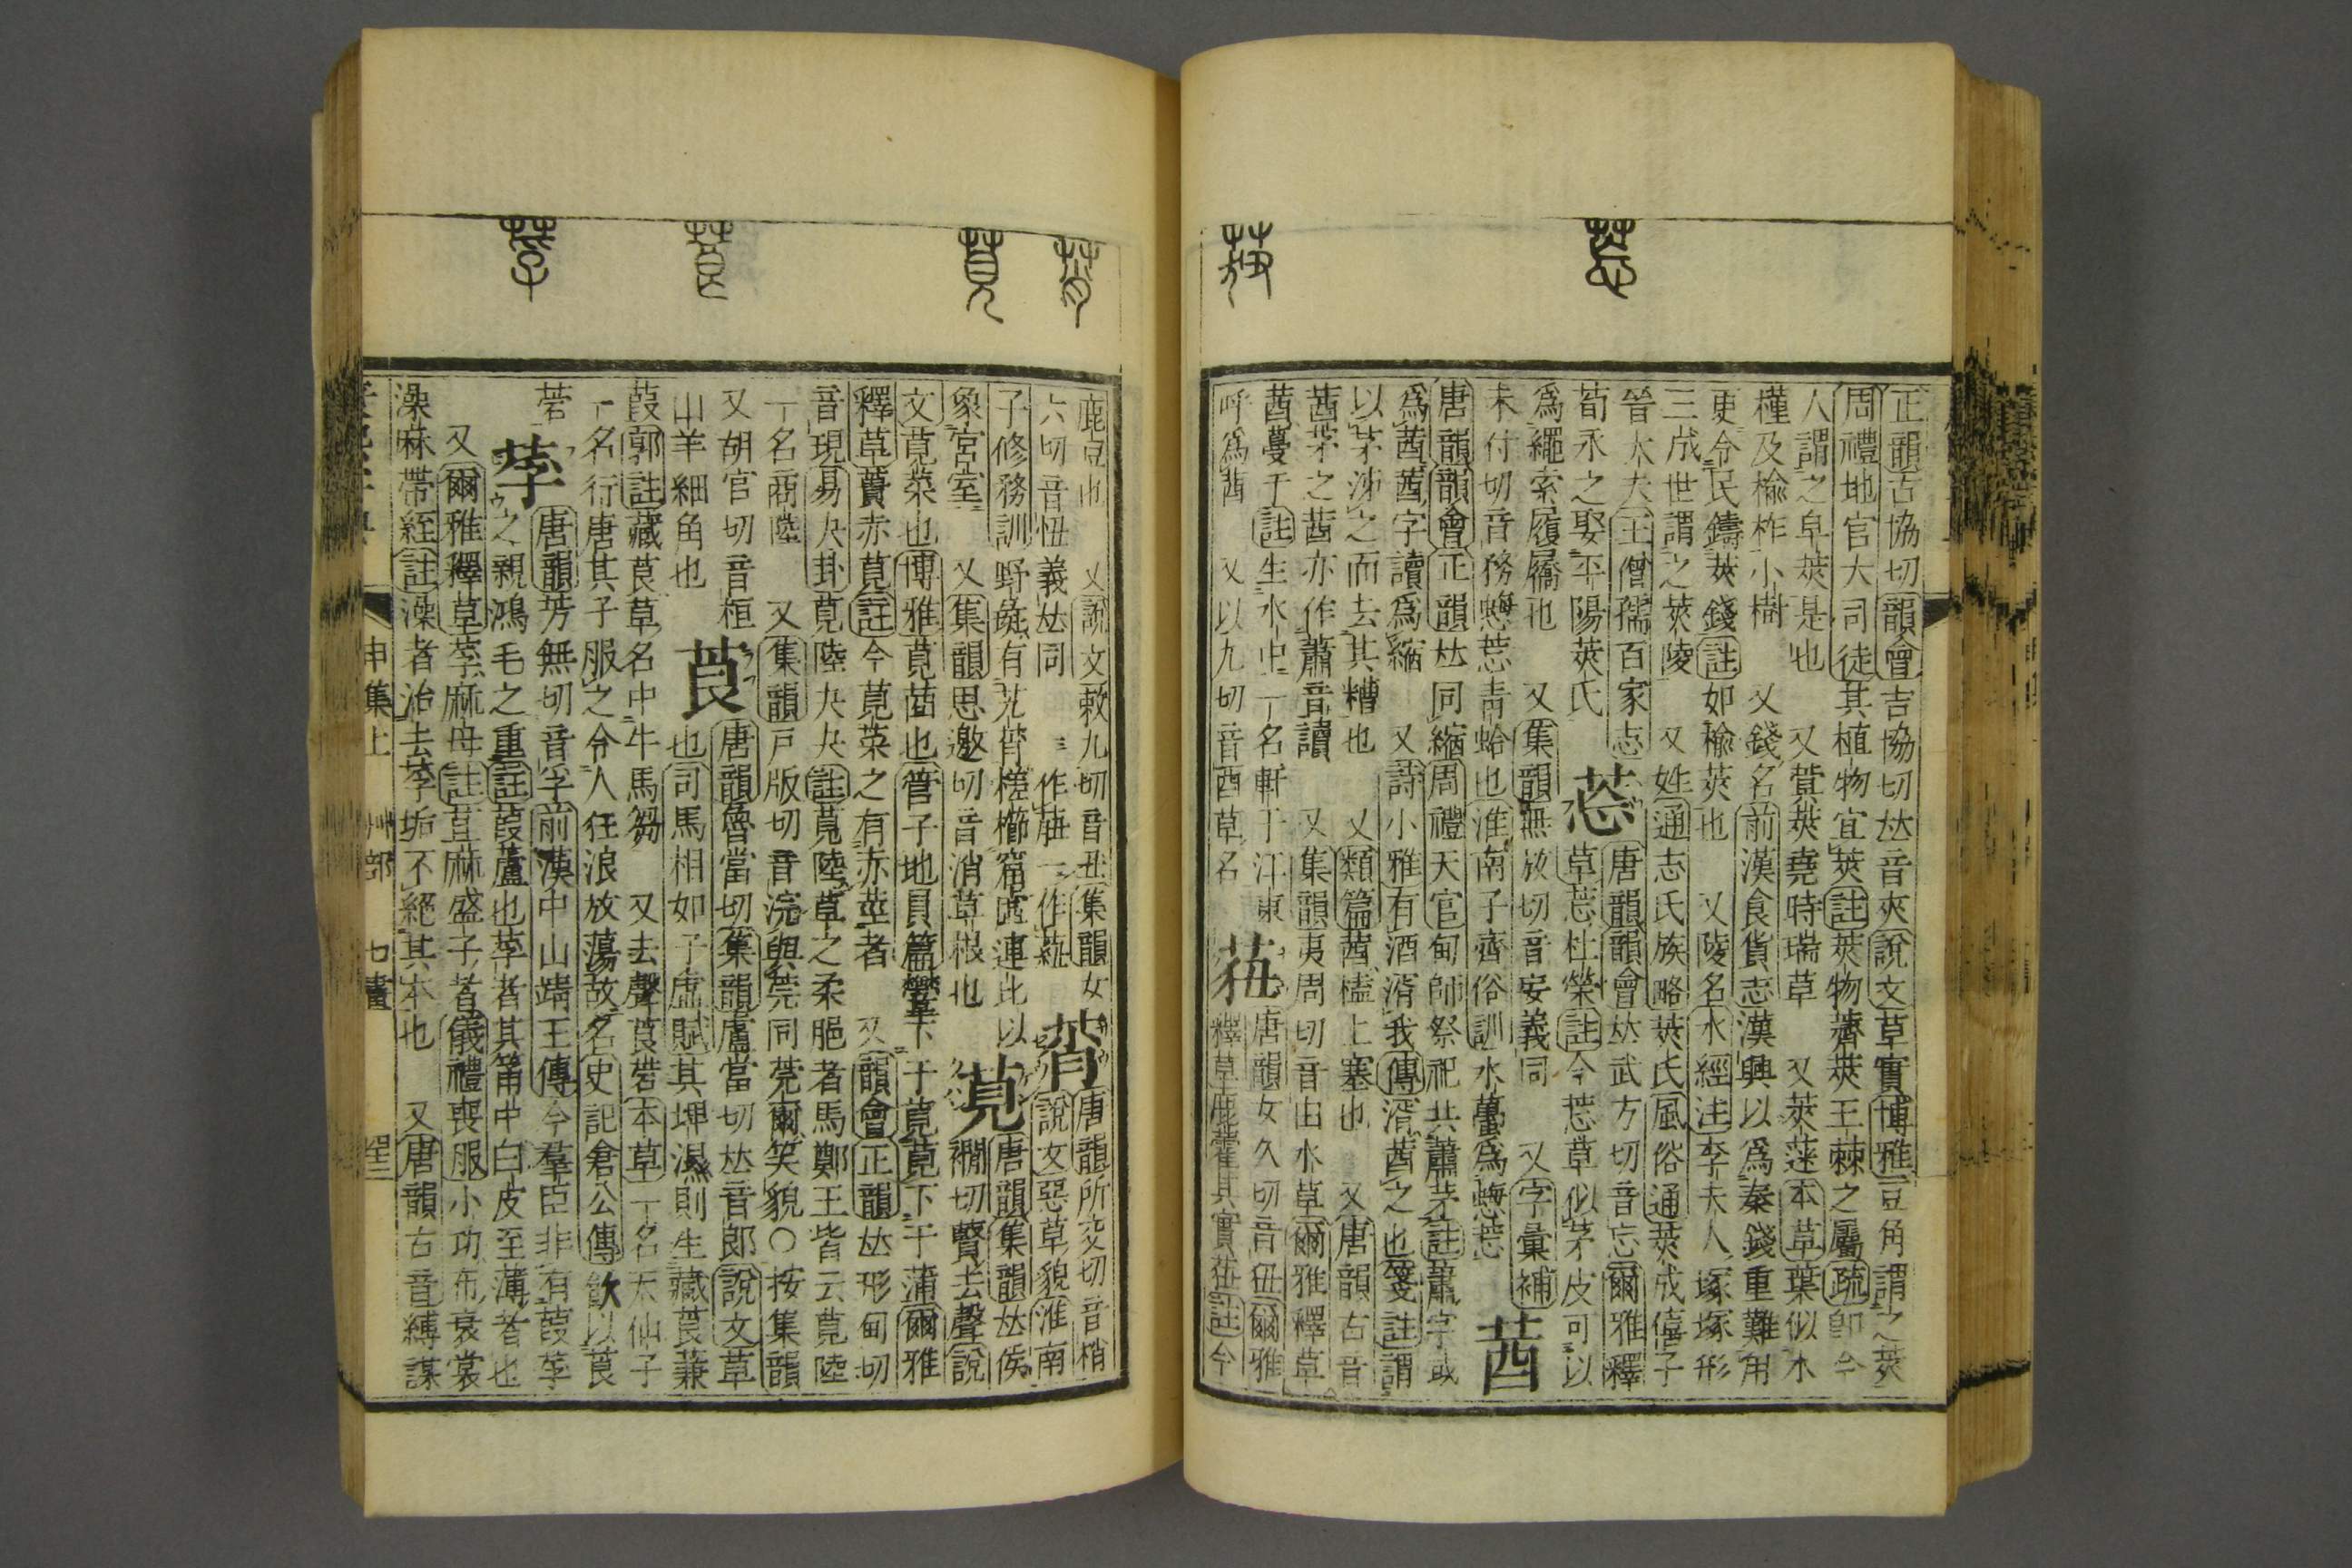 正韻古協切韻會吉協切𠀤音夾說文草實博雅豆角謂之莢
周禮地官大司徒其植物宜莢註莢物薺莢王棘之屬疏卽今
人謂之皁莢是也　又蓂莢堯時瑞草　又莢蒾本草葉似木
槿及楡柞小樹　又錢名前漢食貨志漢興以爲秦錢重難用
更令民鑄莢錢註如楡莢也　又陵名水經注李夫人冢冢形
三成世謂之莢陵　又姓通志氏族略莢氏風俗通莢成僖子
晉大夫王僧孺百家志
荀永之娶平陽莢氏
莣
唐韻韻會𠀤武方切音忘爾雅釋
草莣杜榮註今莣草似茅皮可以
爲繩索履屩也　又集韻無放切音妄義同　又字彙補
未付切音務蟱莣靑蛤也淮南子齊俗訓水蠆爲蟱莣
莤
唐韻韻會正韻𠀤同縮周禮天官甸師祭祀共蕭茅註蕭字或
爲莤莤字讀爲縮　又詩小雅有酒湑我傳湑莤之也箋註謂
以茅泲之而去其糟也　又類篇莤榼上塞也　又唐韻古音
莤茅之莤亦作蕭音讀　又集韻夷周切音由水草爾雅釋草
莤蔓于註生水中一名軒于江東
呼爲莤　又以九切音酉草名
莥
唐韻女久切音狃爾雅
釋草鹿藿其實莥註今
鹿豆也　又說文敕九切音丑集韻女
六切音忸義𠀤同　作䒴一作蘣
莦
唐韻所交切音梢
說文惡草貌淮南
子修務訓野彘有艽莦槎櫛窟虛連比以
象宮室　又集韻思邀切音消草根也
莧
唐韻集韻𠀤侯
襉切賢去聲說
文莧菜也博雅莧䔇也管子地員篇欒下于莧莧下于蒲爾雅
釋草蕢赤莧註今莧菜之有赤莖者　又韻會正韻𠀤形甸切
音現易夬卦莧陸夬夬註莧陸草之柔脃者馬鄭王皆云莧陸
一名商陸　又集韻戸版切音浣與莞同莞爾笑貌○按集韻
又胡官切音桓
山羊細角也
莨
唐韻魯當切集韻盧當切𠀤音郞說文草
也司馬相如子虛賦其埤濕則生藏莨蒹
葭郭註藏莨草名中牛馬芻　又去聲莨菪本草一名天仙子
一名行唐其子服之令人狂浪放蕩故名史記倉公傳飮以莨
菪
莩
唐韻芳無切音孚前漢中山靖王傳今羣臣非有葭莩
之親鴻毛之重註葭蘆也莩者其筩中白皮至薄者也
又爾雅釋草莩麻母註苴麻盛子者儀禮喪服小功布衰裳
澡麻帶絰註澡者治去莩垢不絕其本也　又唐韻古音縛謀
申集上　艸部　七畫